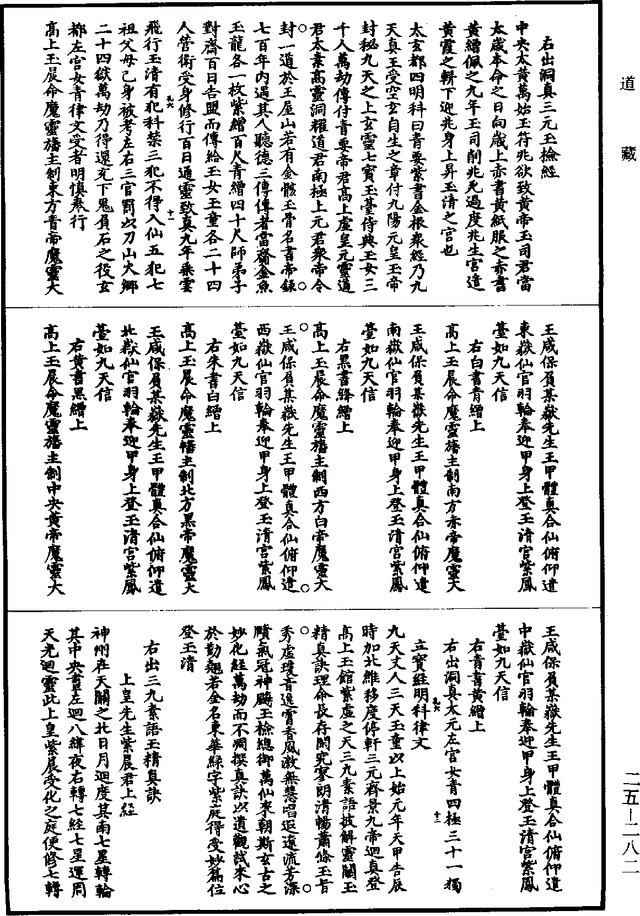 道藏
右出洞真三元玉檢經
中央太黃萬始玉符兆欲致黃帝玉司君當
太歲本命之日向歲上赤書黃紙服之赤書
黃繒佩之九年玉司削兆死過度兆生宮遣
黃霞之軿下迎兆身上昇玉清之宮也
太玄都四明科曰青要紫書金根衆經乃九
天真王受空玄自生之章付九陽元皇玉帝
封秘九天之上玄靈七寶玉臺侍典玉女三
千人萬劫傳付青要帝君高上虛皇元靈道
君太素高靈洞耀道君南極上元君衆帝令
封一通於王屋山若有金骸玉骨名書帝錄
七百年内遇其人聽德三傳傳者當齋金魚
玉龍各一枚紫繒百尺青繒四十尺師弟子
對齋百日告盟而傳給玉女玉童各二十四
人營衛受身修行百日通靈致真九年乘雲
飛行玉清有犯科禁三犯不得入仙五犯七
祖父母已身被考左右三官罰以刀山大鄉
二十四獄萬劫乃得還充下鬼負石之役玄
都左宮女青律文受者明慎奉行
高上玉晨命魔靈旛主制東方青帝魔靈大
王咸保舉某嶽先生王甲體真合仙俯仰遣
東嶽仙官羽輪奉迎甲身上登玉清宮紫鳳
臺如九天信
右白書青繒上
高上玉晨命魔靈旛主制南方赤帝魔靈大
王咸保舉某嶽先生王甲體真合仙俯仰遣
南嶽仙官羽輪奉迎甲身上登玉清宮紫鳳
臺如九天信
右黑書絳繒上
高上玉晨命魔靈旛主制西方白帝魔靈大
王咸保舉某嶽先生王甲體真合仙俯仰遣
西嶽仙官羽輪奉迎甲身上登玉清宮紫鳳
臺如九天信
右朱書白繒上
高上玉晨命魔靈旛主制北方黑帝魔靈大
王咸保舉某嶽先生王甲體真合仙俯仰遣
北嶽仙官羽輪奉迎甲身上登玉清宮紫鳳
臺如九天信
右黃書黑繒上
高上玉晨命魔靈旛主制中央黃帝魔靈大
王咸保舉某嶽先生王甲體真合仙俯仰遣
中嶽仙官羽輪奉迎甲身上登玉清宮紫鳳
臺如九天信
右青書黃繒上
右出洞真太元左官女青四極三十一獨
立寶經明科律文
九天丈人三天玉童以上始元年天甲告辰
時加北維移度停軒三元齊景九帝迴真登
高上玉館紫虛之天三九素語披解靈關玉
精真訣理命長存開究寥朗清暢蕭條玉音
秀虛瓊音逸霄香風激無慧唱遐遠流芳深
賾氣冠神䮟玉檢總御萬仙來朝斯玄古之
妙化經萬劫而不凋撰真訣以道觀試來心
於勤翹若金名東華綠字紫庭得受妙篇位
登玉清
右出三九素語玉精真訣
上皇先生紫晨君上經
神州在天關之北日月迴度其南七星轉輪
其中央晝左迴八緯夜右轉七經七星運周
天光迴靈此上皇紫晨受化之庭便修七轉
二五—二八二